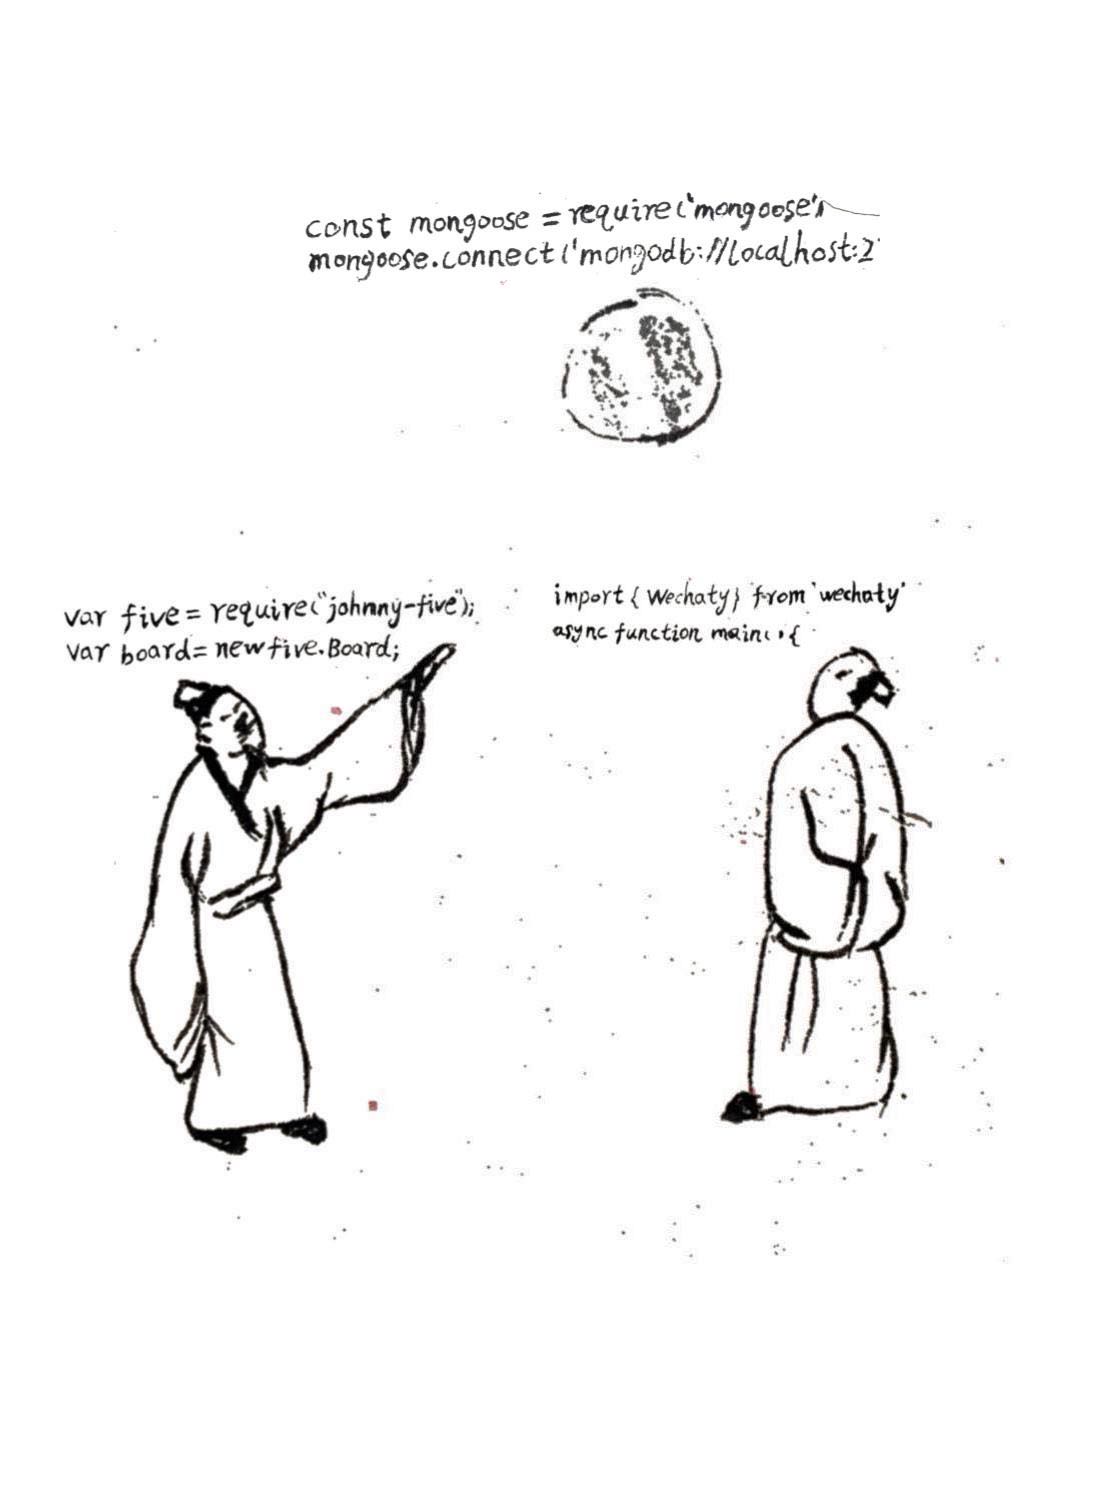 const mongoose = require('mongoose')
mongoose.connect('mongodb://localhost:2
var five = require("johnny-five");
var board = new five.Board;
import { Wechaty } from 'wechaty'
async function main() {